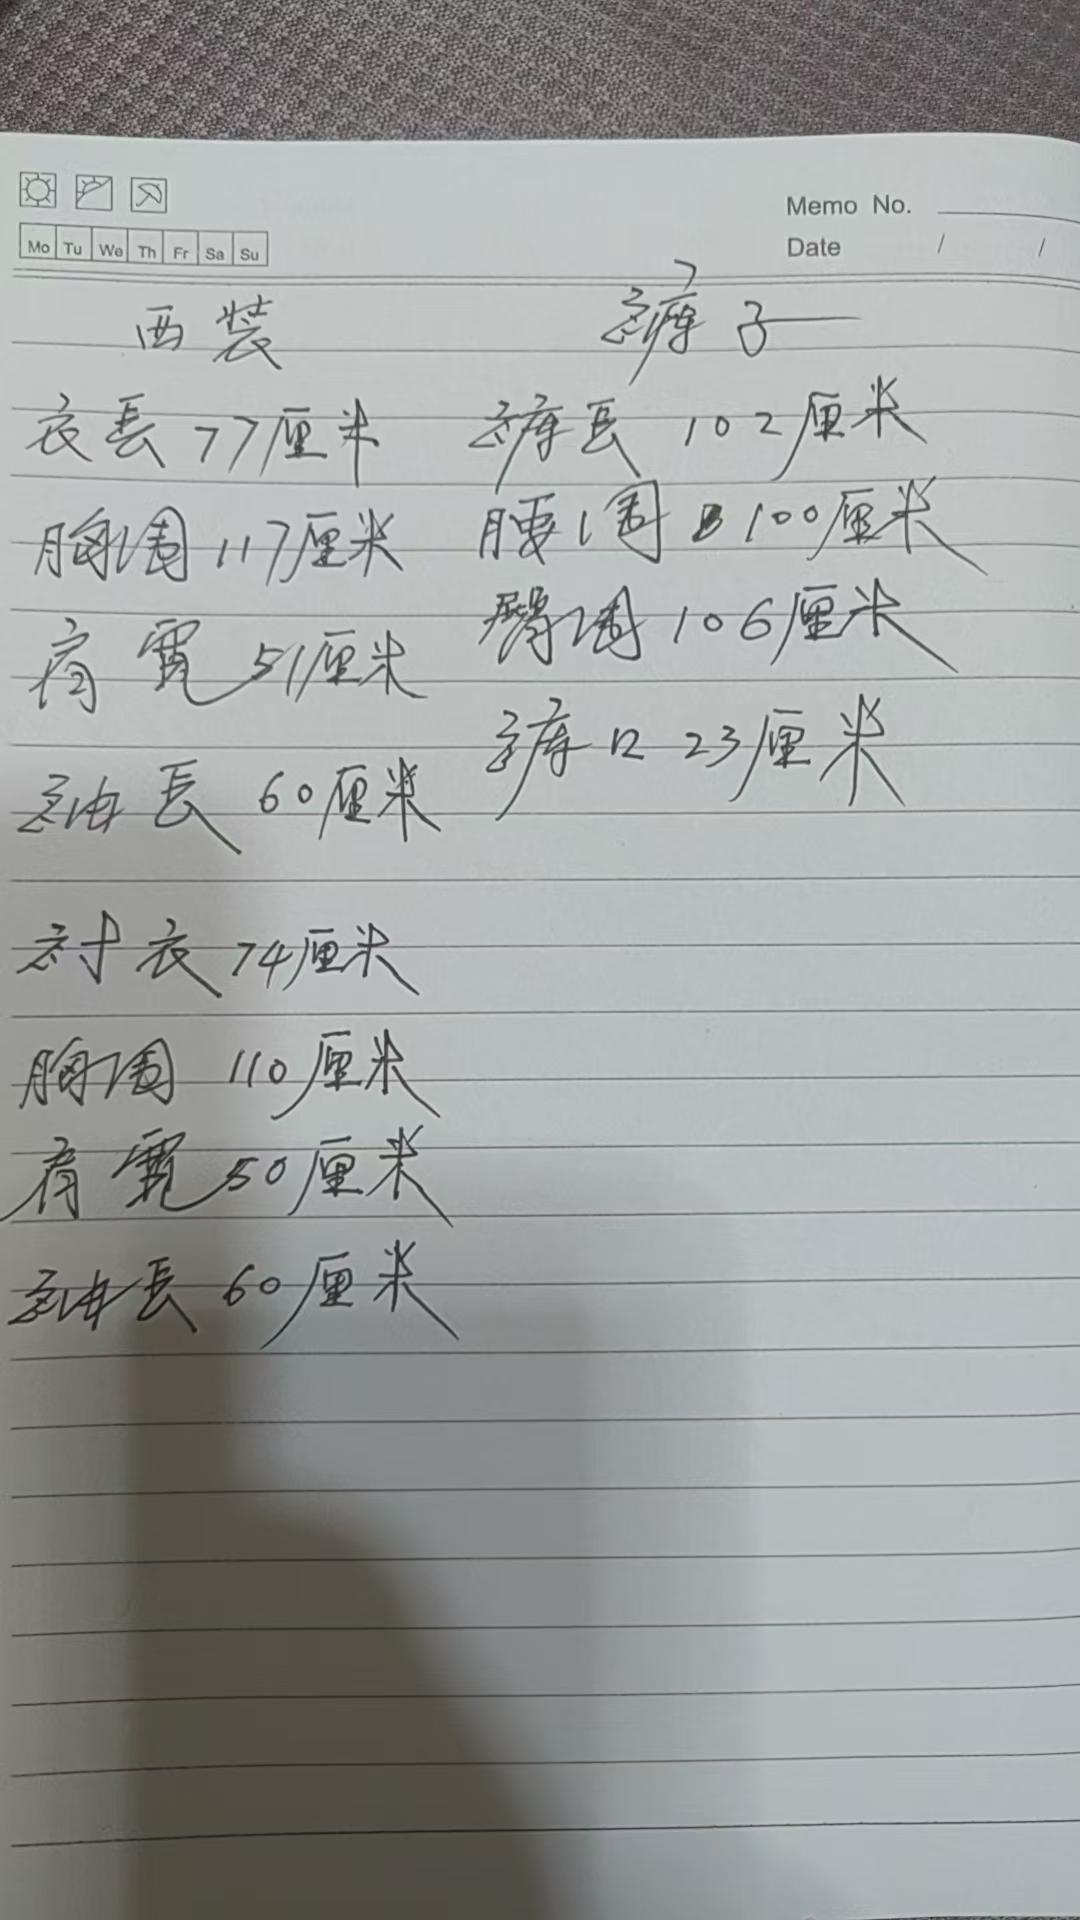 Memo No.
Mo Tu We Th Fr Sa Su
Date / /
西装
衣長 77厘米
胸围 117厘米
肩寬 51厘米
袖長 60厘米
衬衣 74厘米
胸围 110厘米
肩寬 50厘米
袖長 60厘米
裤子
裤長 102厘米
腰围 100厘米
臀围 106厘米
裤口 23厘米